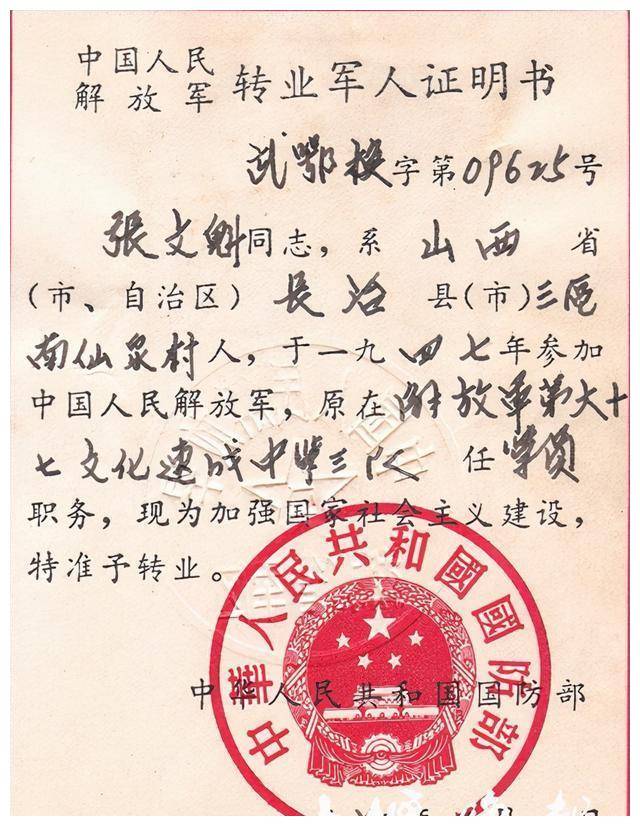 中国人民
解放军
转业军人证明书
武鄂换字第09625号
张文魁同志，系山西省
（市、自治区）长治县（市）三区
南仙泉村人，于一九四七年参加
中国人民解放军，原在解放军第六十
七文化速成中学三队任学员
职务，现为加强国家社会主义建设，
特准予转业。
中华人民共和国国防部
中華人民共和國國防部